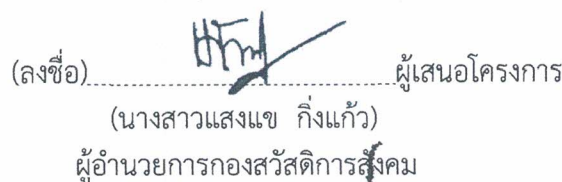 (ลงชื่อ)..................................................ผู้เสนอโครงการ
(นางสาวแสงแข กิ่งแก้ว)
ผู้อำนวยการกองสวัสดิการสังคม